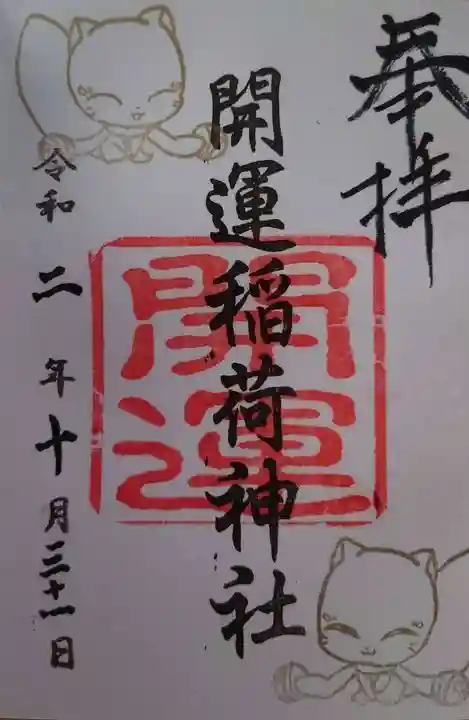 奉拝
開運稲荷神社
開運
令和二年十月三十一日